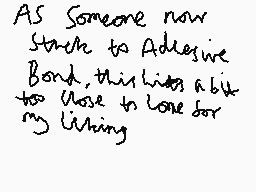 AS Someone now
Stuck to Adhesive
Bond, this hits a bit
too close to home for
my liking